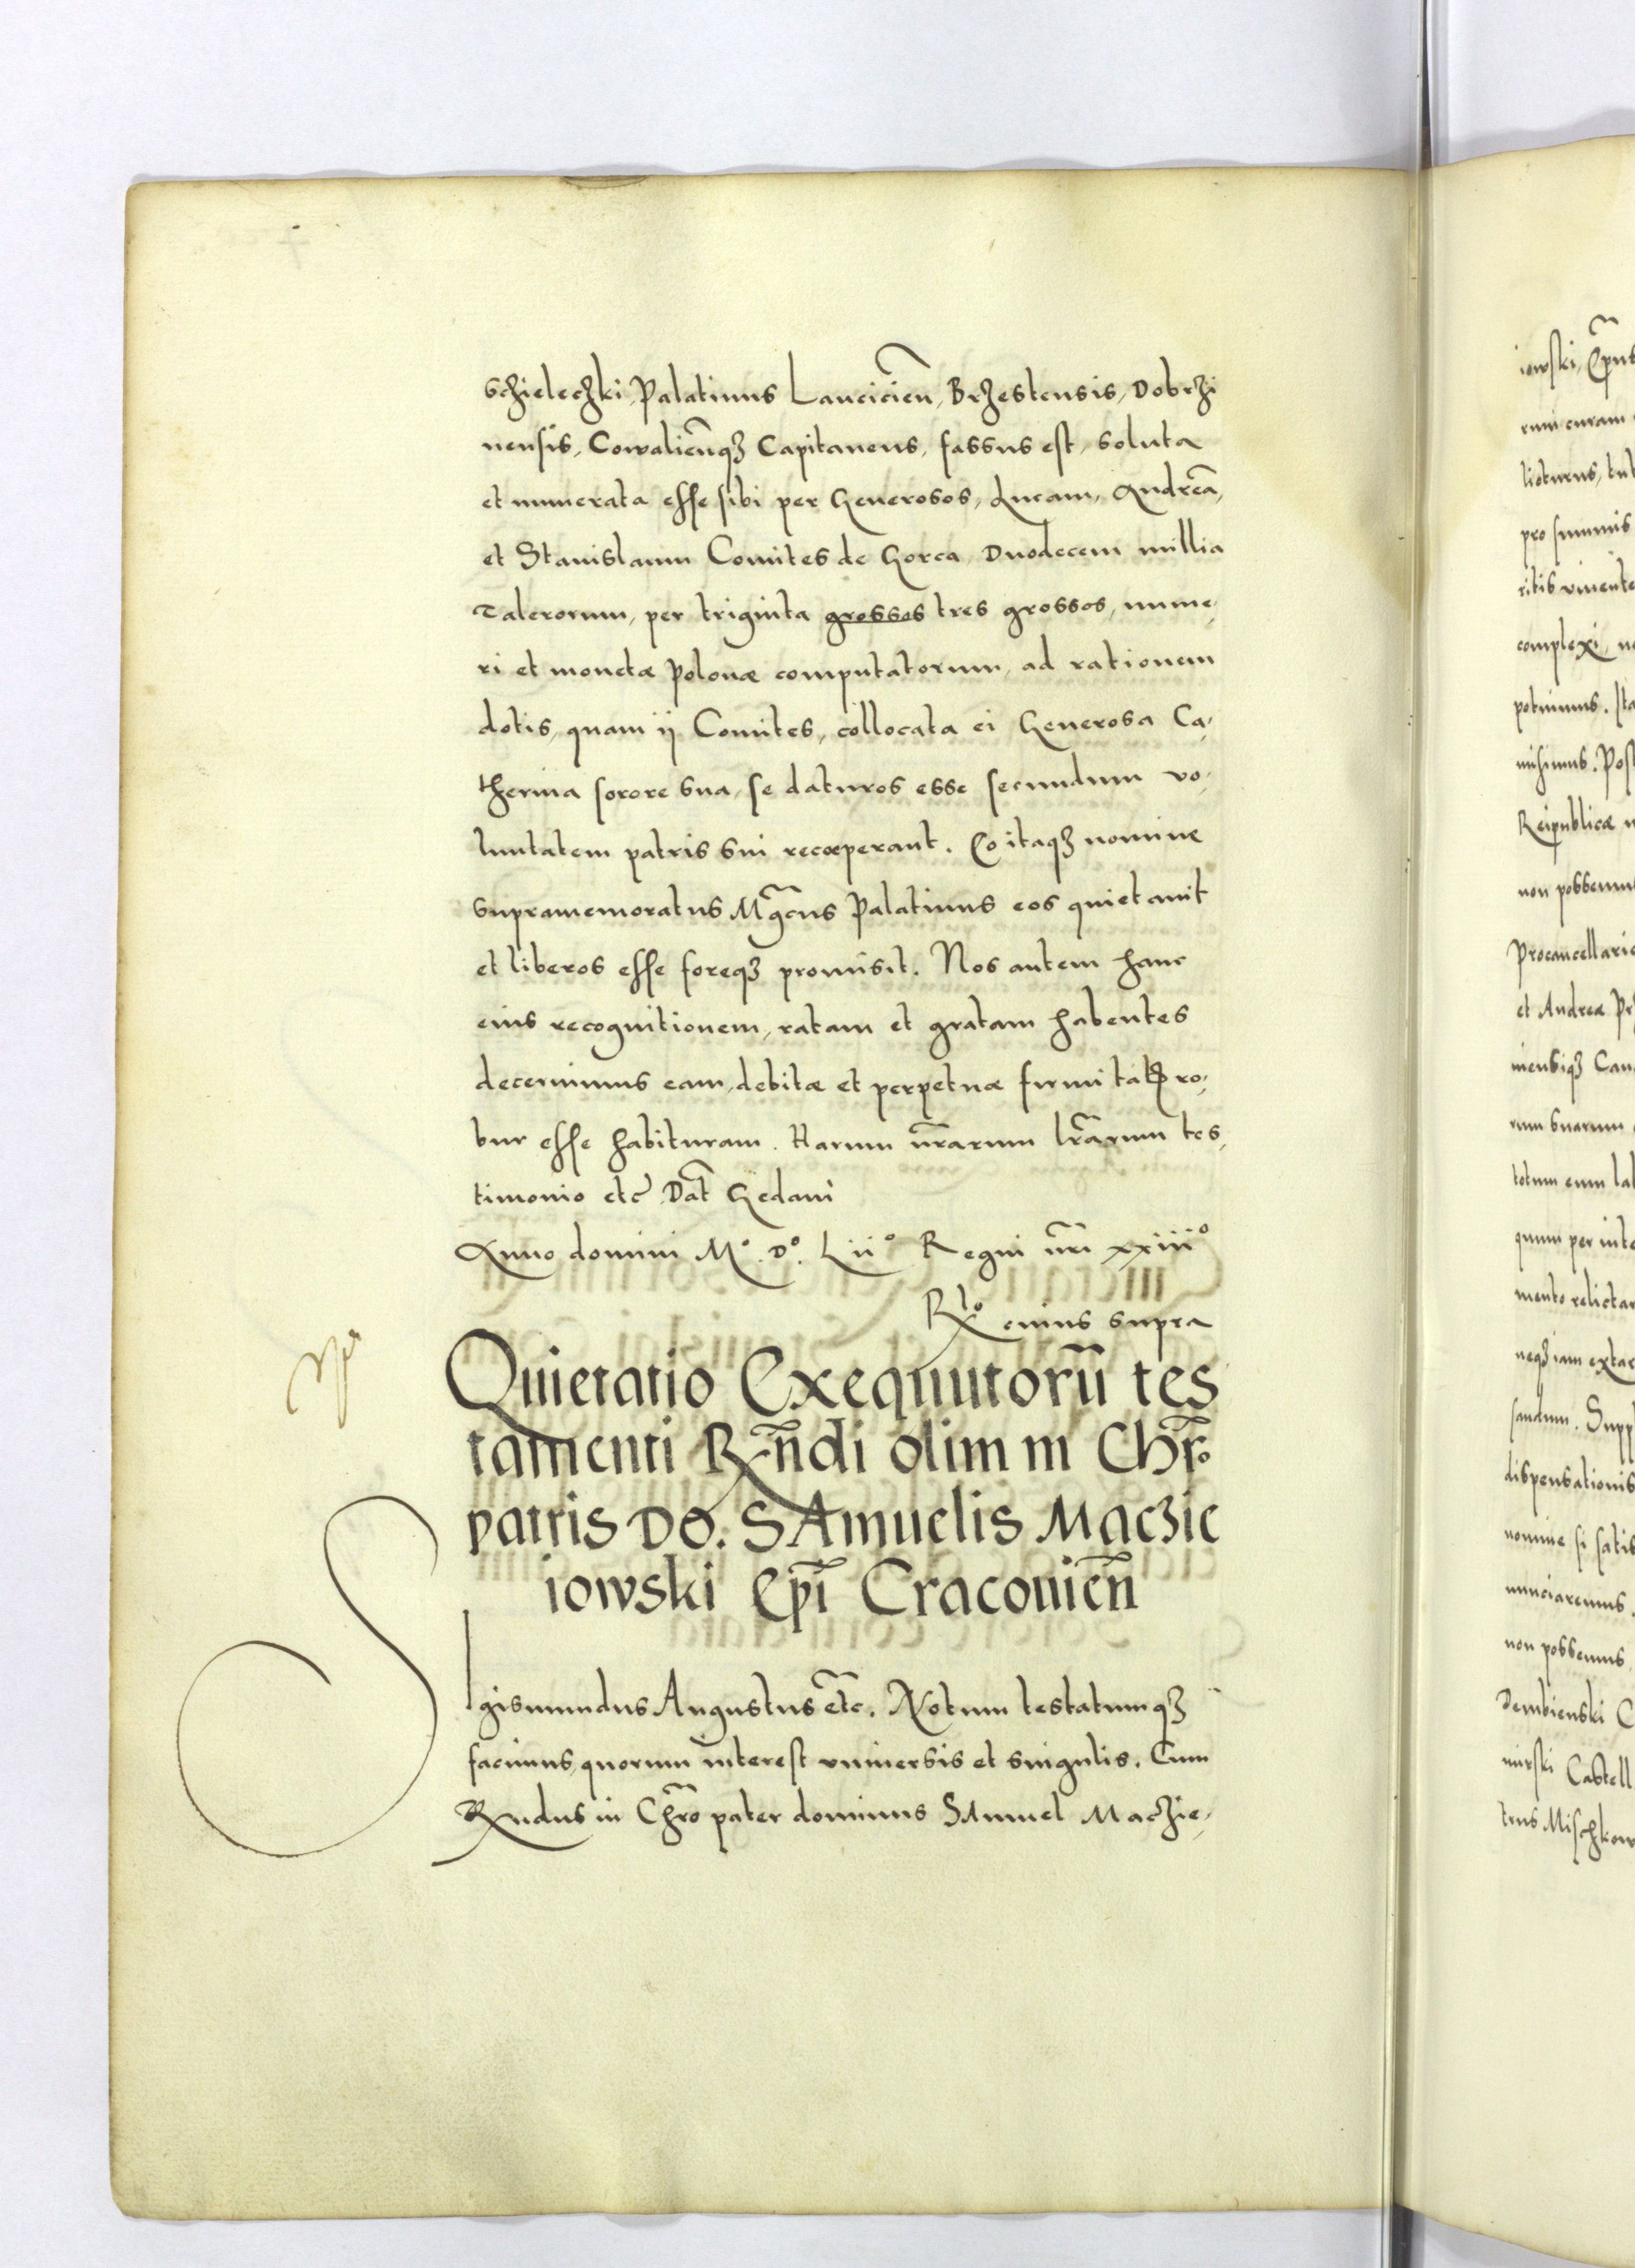 Schielechki, Palatinus Lancicien̄, Brzestensis, Dobrzi
nensis, Cowalien̄qꝫ Capitaneus, fassus est, soluta
et numerata esse sibi per Generosos, Lucam, Andreā,
et Stanislaum Comites de Gorca, Duodecem millia
Talerorum, per triginta grossos tres grossos, nume,
ri et monetæ Polonæ computatorum, ad rationem
dotis, quam ij Comites, collocata ei Generosa Ca,
therina sorore sua, se daturos esse secundum vo,
luntatem patris sui recœperant. Eo itaqꝫ nomine
supramemoratus Mg̃cus Palatinus eos quietauit
et liberos esse foreqꝫ promisit. Nos autem hanc
eius recognitionem, ratam et gratam habentes
decernimus eam, debitæ et perpetuæ firmitatꝭ ro,
bur esse habituram. Harum nr̃arum lr̃arum tes,
timonio etc̃ Dat̃ Gedani
Anno domini M.º D.º Lijº Regni nr̃i xxiiiº
Rloº cuius supra
Quietatio Exequutorū tes
tamenti Rñdi olim in Chr̃o
patris DO. SAmuelis Maczie
iowski Ep̃i Cracouien̄
SIgismundus Augustus etc̃. Notum testatumqꝫ
facimus, quorum interest vniuersis et singulis. Cum
Rndus in Chr̃o pater dominus SAmuel Maczie,
iowski, Ep̃us
rum curam
pro summis
complexi
potuimus. Ita
misimus. Post
Reipublicæ
non possemus
Procancellario
et Andreæ
niensiqꝫ
rum suarum
totum eum
quum per
mento
neqꝫ iam
sandum. Supp
dispensationis
nomine si satis
nunciaremus.
non possemus
Dembienski C
Castell
trus Mischkow